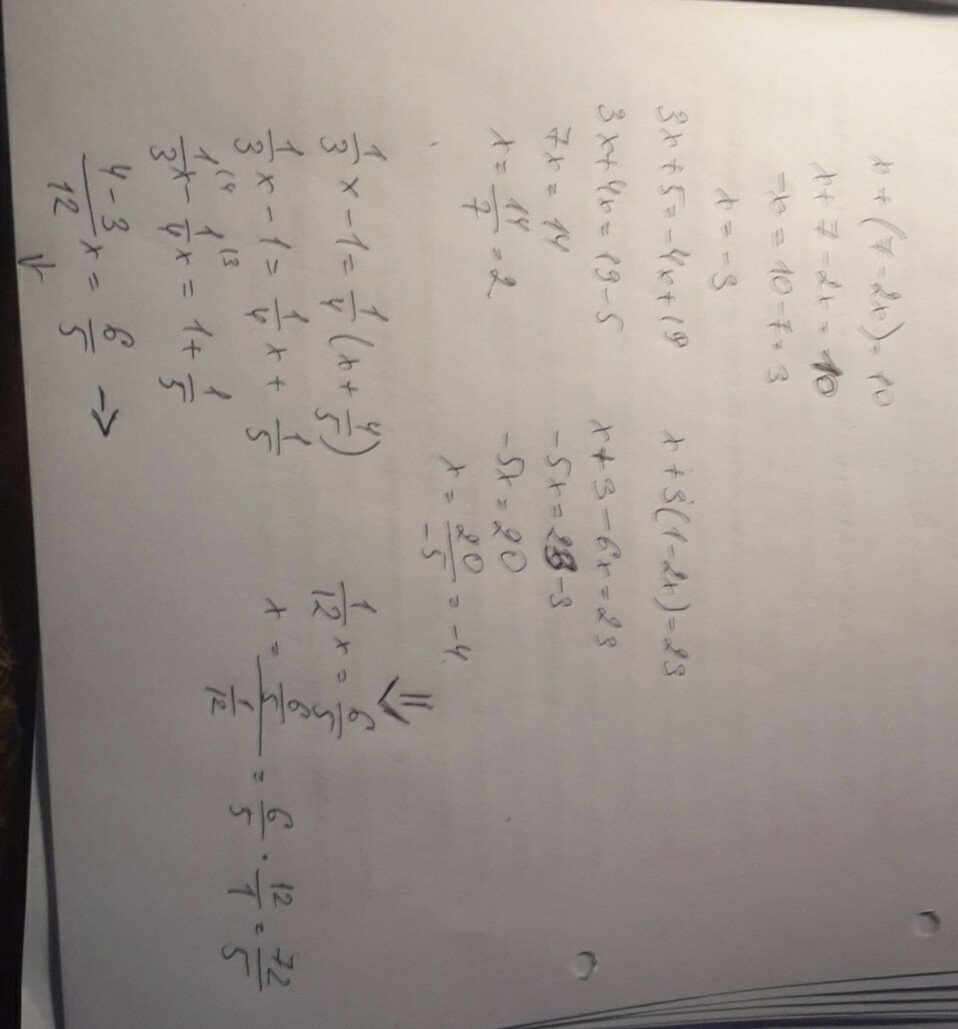 x + (7 - 2x) = 10
x + 7 - 2x = 10
-x = 10 - 7 = 3
x = -3
3x + 5 = -4x + 19
3x + 4x = 19 - 5
7x = 14
x = 14/7 = 2
x + 3(1 - 2x) = 23
x + 3 - 6x = 23
-5x = 23 - 3
-5x = 20
x = 20/-5 = -4
1/3 x - 1 = 1/4 (x + 4/5)
1/3 x - 1 = 1/4 x + 1/5
1/3 |4 x - 1/4 |3 x = 1 + 1/5
4-3/12 x = 6/5 →
↓
⇓
1/12 x = 6/5
x = 6/5 / 1/12 = 6/5 · 12/1 = 72/5